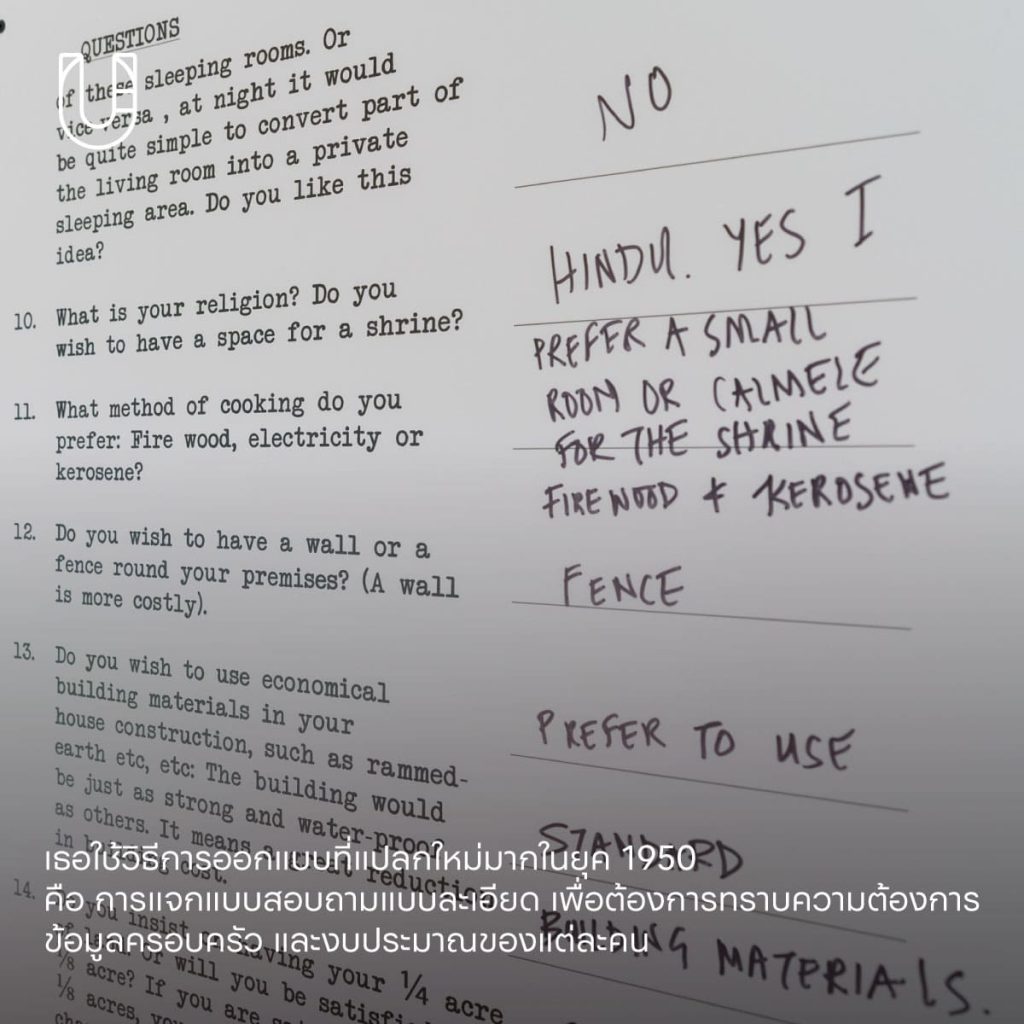 QUESTIONS
of these sleeping rooms. Or
vice versa , at night it would
be quite simple to convert part of
the living room into a private
sleeping area. Do you like this
idea?
NO
10. What is your religion? Do you
wish to have a space for a shrine?
HINDU. YES I
PREFER A SMALL
ROOM OR CALMELE
FOR THE SHRINE
11. What method of cooking do you
prefer: Fire wood, electricity or
kerosene?
FIREWOOD & KEROSENE
12. Do you wish to have a wall or a
fence round your premises? (A wall
is more costly).
FENCE
13. Do you wish to use economical
building materials in your
house construction, such as rammed-
earth etc, etc: The building would
be just as strong and water-proof
as others. It means a great reduction
in building cost.
PREFER TO USE
STANDARD
BUILDING MATERIALS.
14. Do you insist on having your ¼ acre
or will you be satisfied
⅛ acre? If you are
⅛ acres, you
เธอใช้วิธีการออกแบบที่แปลกใหม่มากในยุค 1950
คือ การแจกแบบสอบถามแบบละเอียด เพื่อต้องการทราบความต้องการ
ข้อมูลครอบครัว และงบประมาณของแต่ละคน